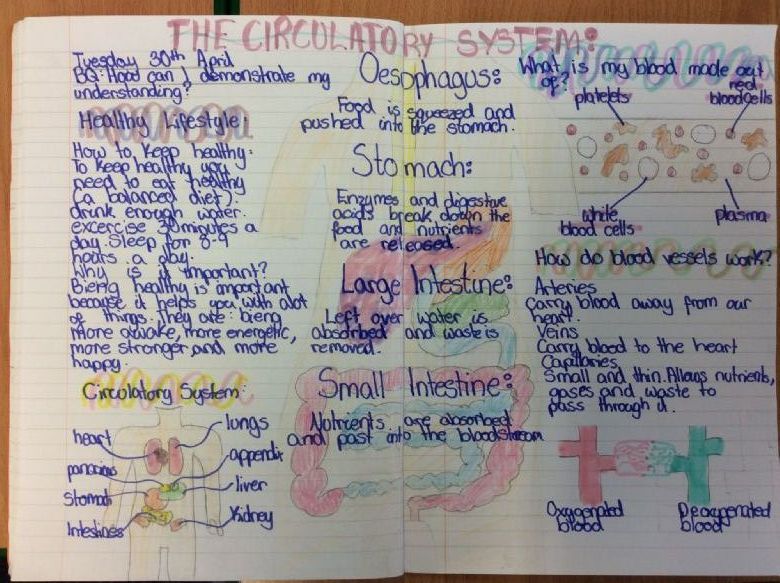 THE CIRCULATORY SYSTEM:
Tuesday 30th April
BQ: Hood can I demonstrate my
understanding?
Healthy Lifestyle:
How to keep healthy:
To keep healthy you
need to eat healthy
(a balanced diet).
drink enough water.
excercise 30 minutes a
day. Sleep for 8-9
hours a day.
Why is it important?
Bieng healthy is important
because it helps you with alot
of things. They are: bieng
more awake, more energetic,
more stronger and more
happy.
Circulatory System:
heart
lungs
pancreas
appendix
Stomach
liver
Intestines
Kidney
Oesophagus:
Food is squeezed and
pushed into the stomach.
Stomach:
Enzymes and digestive
acids break down the
food and nutrients
are released.
Large Intestine:
Left over water is
absorbed and waste is
removed.
Small Intestine:
Nutrients are absorbed
and past into the bloodstream
What is my blood made out
of?
platelets
red
blood cells
white
blood cells
plasma
How do blood vessels work?
Arteries
Carry blood away from our
heart.
Veins
Carry blood to the heart
Capillaries
Small and thin. Allows nutrients,
gases and waste to
pass through it.
Oxygenated
blood
Deoxygenated
blood